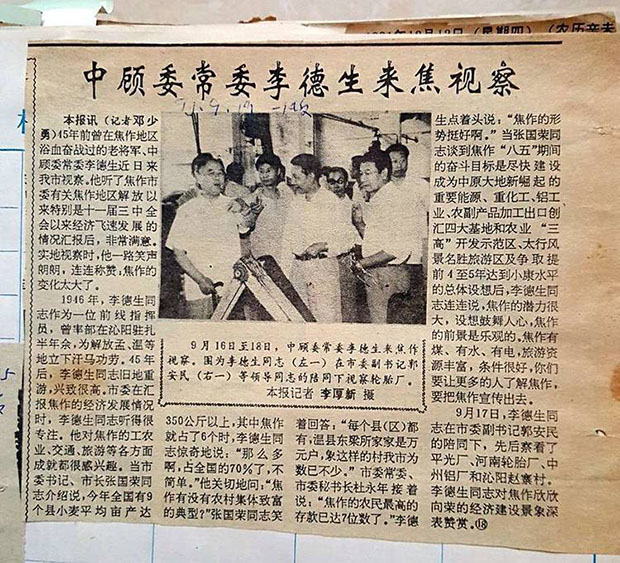 (星期四)
(农历辛未
中顾委常委李德生来焦视察
本报讯 (记者邓少
勇) 45年前曾在焦作地区
浴血奋战过的老将军、中
顾委常委李德生近日来
我市视察。他听了焦作市
委有关焦作地区解放以
来特别是十一届三中全
会以来经济飞速发展的
情况汇报后,非常满意。
实地视察时,他一路笑声
朗朗,连连称赞;焦作的
变化太大了。
1946年,李德生同
志作为一位前线指挥
员,曾率部在沁阳驻扎
半年余,为解放孟、温等
地立下汗马功劳。45年
后,李德生同志旧地重
游,兴致很高。市委在汇
报焦作的经济发展情况
时,李德生同志听得很
专注。他对焦作的工农
业、交通、旅游等各方面
成就都很感兴趣。当市
委书记、市长张国荣同
志介绍说,今年全国有9
个县小麦平均亩产达
9月16日至18日,中顾委常委李德生来焦作
视察。图为李德生同志(左一)在市委副书记郭
安民(右一)等领导同志的陪同下视察轮胎厂。
本报记者 李厚新 摄
350公斤以上,其中焦作
就占了6个时,李德生同
志惊奇地说:“那么多
啊,占全国的70%了,不
简单。”他关切地问:“焦
作有没有农村集体致富
的典型?”张国荣同志笑
着回答:“每个县(区)都
有,温县东梁所家家是万
元户,象这样的村我市为
数已不少。”市委常委、
市委秘书长杜永年接着
说:“焦作的农民最高的
存款已达7位数了。”李德
生点着头说:“焦作的形
势挺好啊。”当张国荣同
志谈到焦作“八五”期间
的奋斗目标是尽快建设
成为中原大地新崛起的
重要能源、重化工、铝工
业、农副产品加工出口创
汇四大基地和农业“三
高”开发示范区、太行风
景名胜旅游区及争取提
前4至5年达到小康水平
的总体设想后,李德生同
志连连说,焦作的潜力很
大,设想鼓舞人心,焦作
的前景是乐观的。焦作有
煤、有水、有电,旅游资
源丰富,条件很好,你们
要让更多的人了解焦作,
要把焦作宣传出去。
9月17日,李德生同
志在市委副书记郭安民
的陪同下,先后察看了
平光厂、河南轮胎厂、中
州铝厂和沁阳赵寨村。
李德生同志对焦作欣欣
向荣的经济建设景象深
表赞赏。⑱